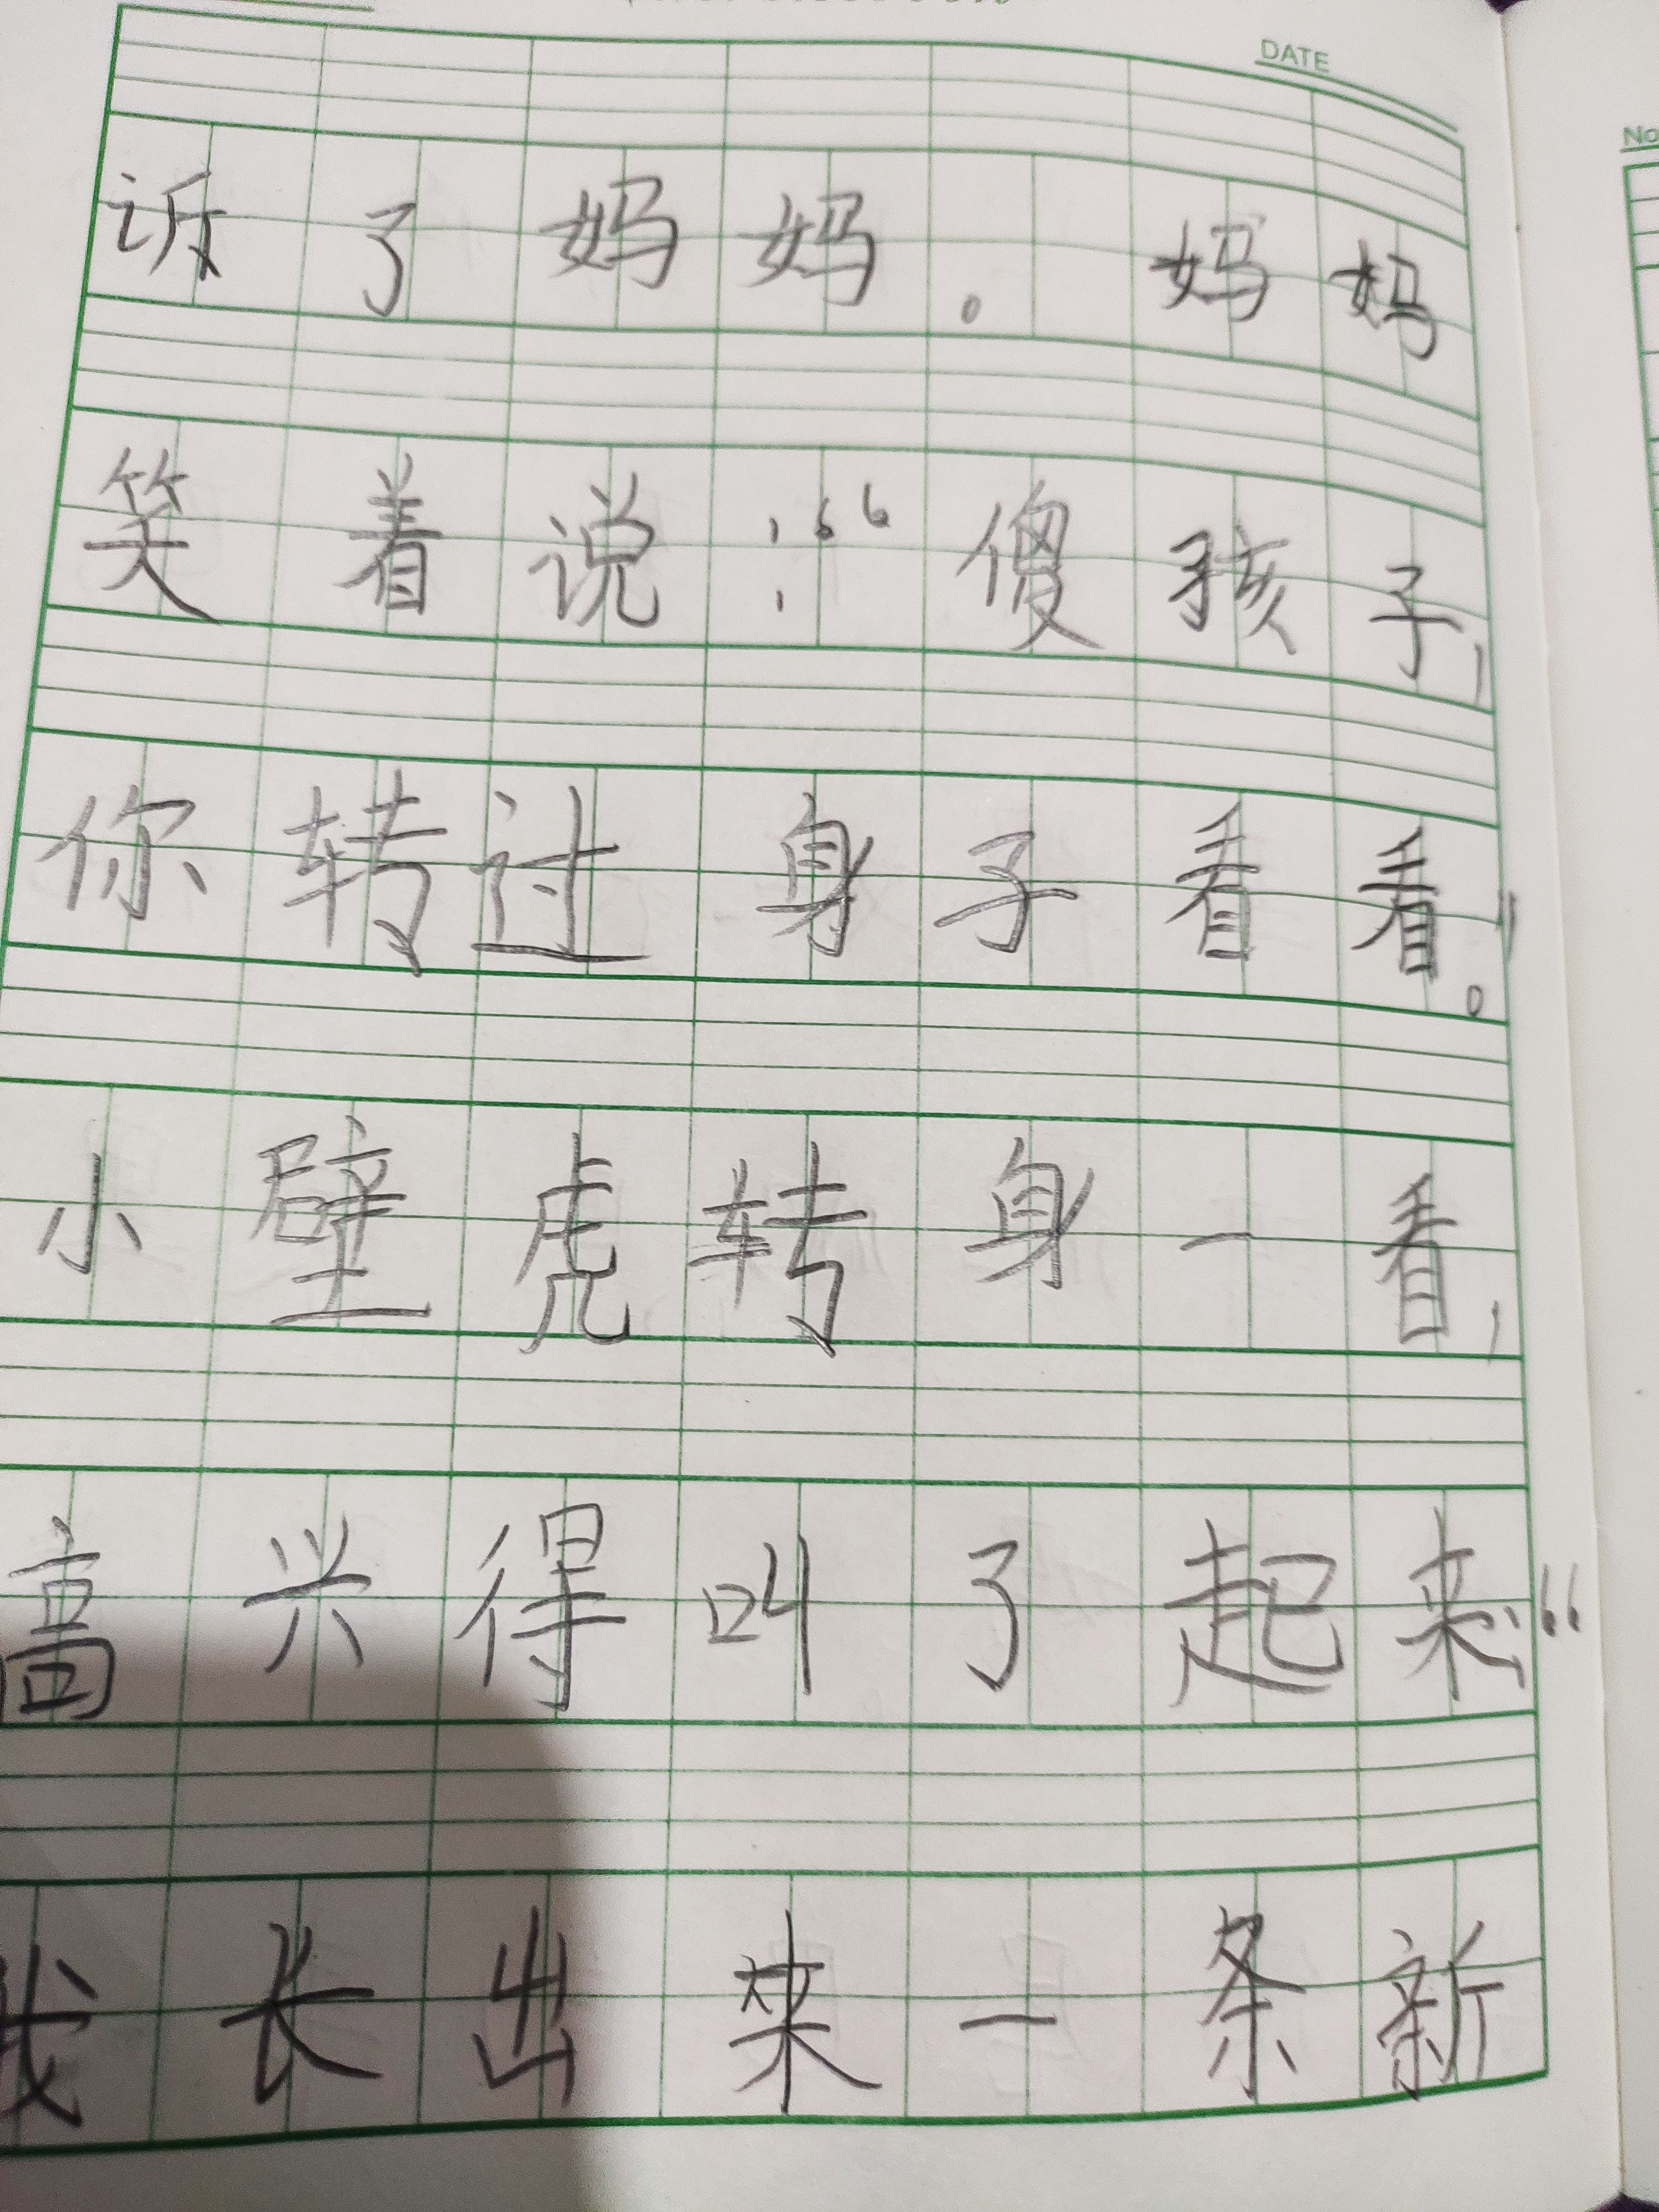 DATE
诉了妈妈。妈妈
笑着说：“傻孩子，
你转过身子看看。”
小壁虎转身一看，
高兴得叫了起来：“
我长出来一条新
No